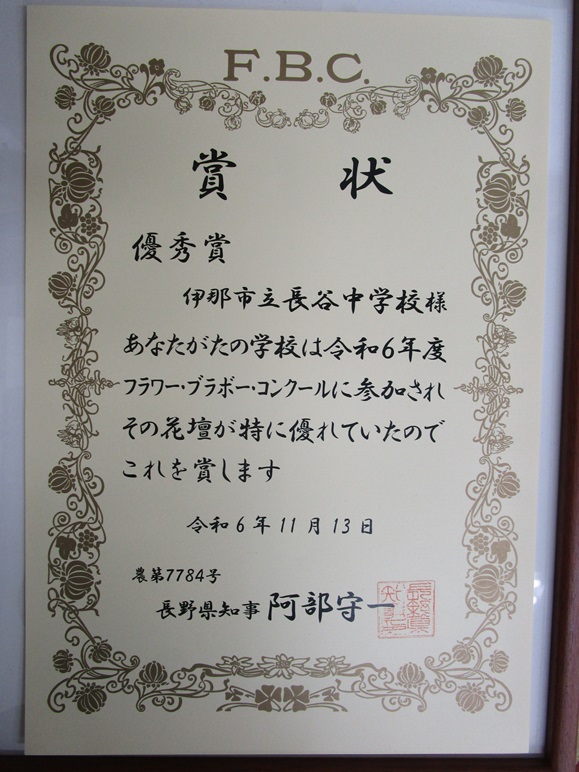 F.B.C.
賞 状
優秀賞
伊那市立長谷中学校様
あなたがたの学校は令和6年度
フラワー・ブラボー・コンクールに参加され
その花壇が特に優れていたので
これを賞します
令和6年11月13日
農第7784号
長野県知事 阿部守一